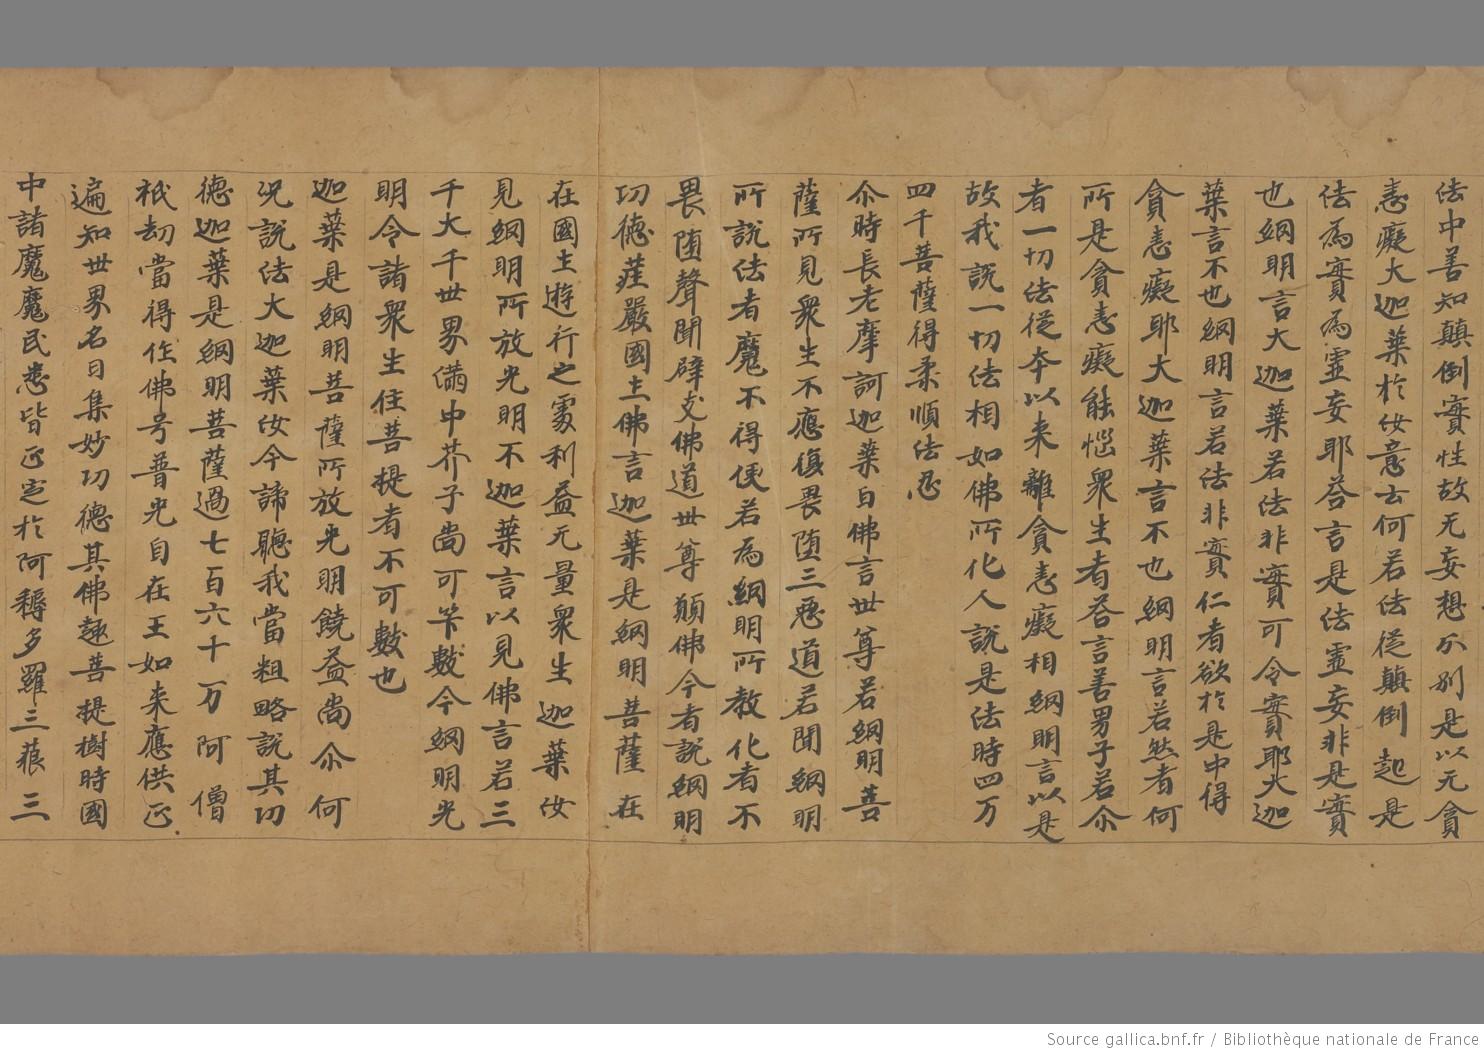 法中善知顛倒實性故无妄想分別是以无貪
恚癡大迦葉於汝意云何若法從顛倒起是
法為實為虛妄耶荅言是法虛妄非是實
也網明言大迦葉若法非實可令實耶大迦
葉言不也網明言若法非實仁者欲於是中得
貪恚癡耶大迦葉言不也網明言若然者何
所是貪恚癡能惱眾生者荅言善男子若尒
者一切法從本以來離貪恚癡相網明言以是
故我說一切法相如佛所化人說是法時四万
四千菩薩得柔順法忍
尒時長老摩訶迦葉白佛言世尊若網明菩
薩所見眾生不應復畏墮三惡道若聞網明
所說法者魔不得便若為網明所教化者不
畏墮聲聞辟支佛道世尊願佛今者說網明
功德莊嚴國土佛言迦葉是網明菩薩在
在國土遊行之處利益无量眾生迦葉汝
見網明所放光明不迦葉言以見佛言若三
千大千世界滿中芥子尚可筭數今網明光
明令諸眾生住菩提者不可數也
迦葉是網明菩薩所放光明饒益尚尒何
況說法大迦葉汝今諦聽我當粗略說其功
德迦葉是網明菩薩過七百六十万阿僧
祇劫當得作佛号普光自在王如来應供正
遍知世界名曰集妙功德其佛趣菩提樹時國
中諸魔魔民悉皆正定於阿耨多羅三藐三
Source gallica.bnf.fr / Bibliothèque nationale de France